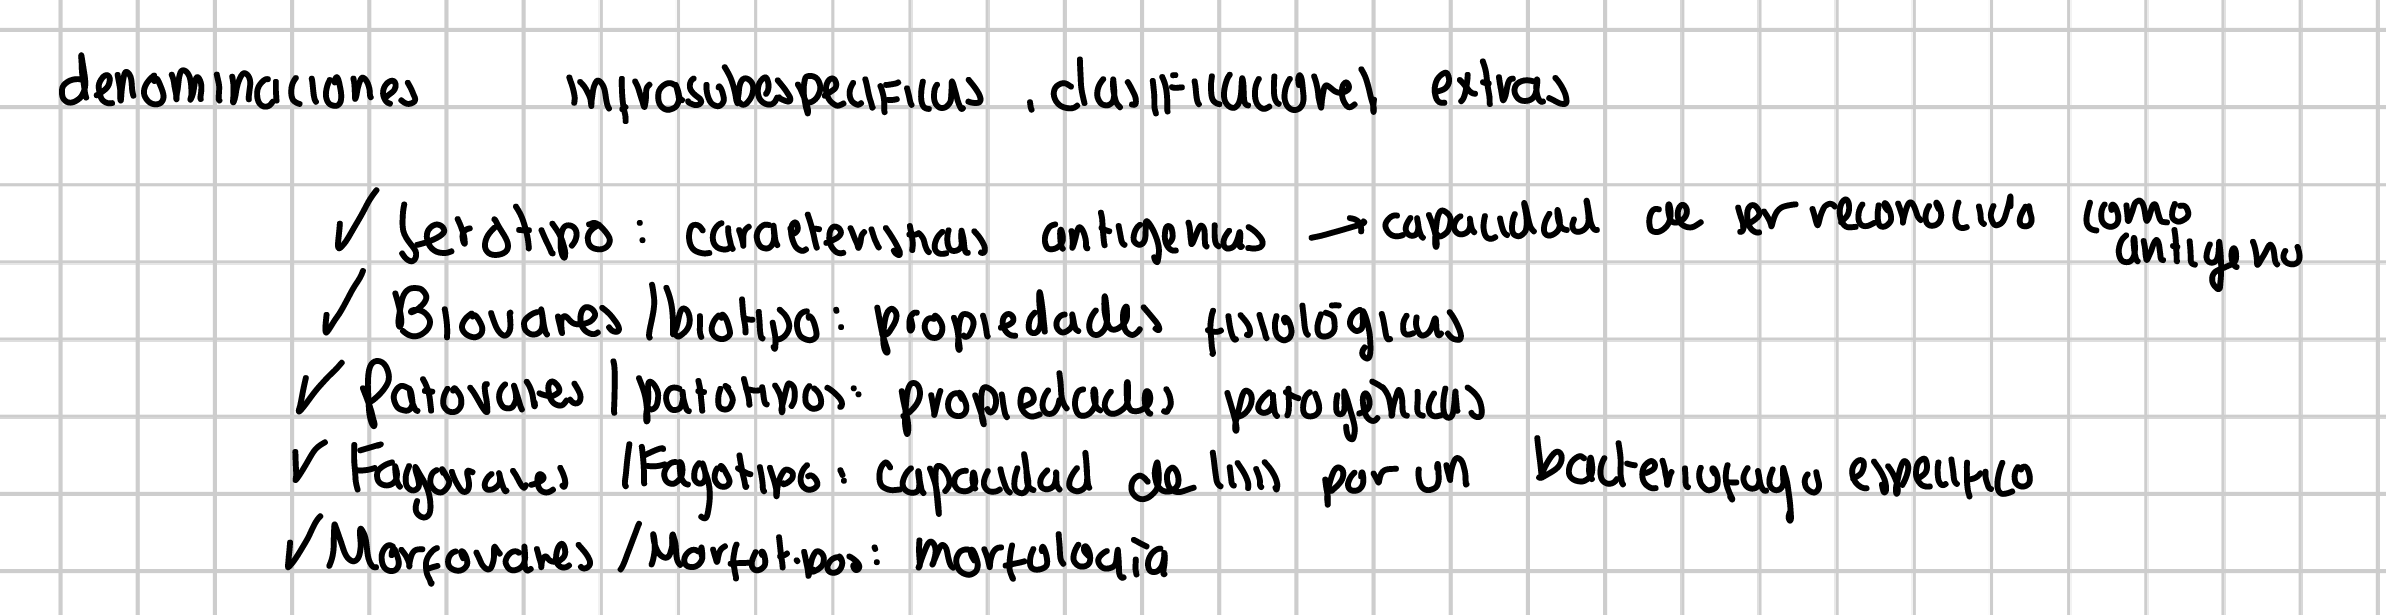 denominaciones infrasubespecificas, clasificaciones extras
✓ Serotipo: caracteristicas antigenicas → capacidad de ser reconocido como
antigeno
✓ Biovares / biotipo: propiedades fisiológicas
✓ Patovares / patotipos: propiedades patogénicas
✓ Fagovares / Fagotipo: capacidad de lisis por un bacteriofago especifico
✓ Morfovares / Morfotipos: morfología